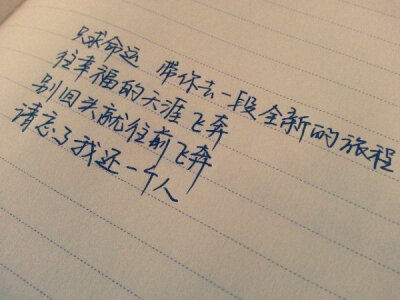 只求命运 带你去一段全新的旅程
往幸福的天涯飞奔
别回头就往前飞奔
请忘了我还一个人